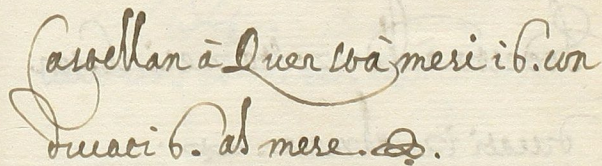 Castellan à Quer so à mesi i6. con
ducati 6. al mese.